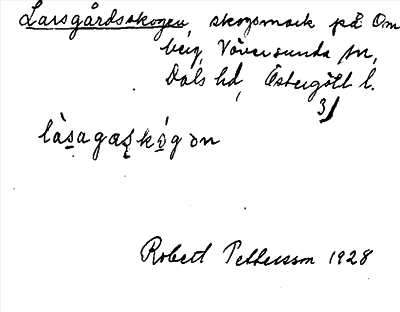 Larsgårdsskogen, skogsmark på Om
berg, Väversunda sn,
Dals hd, Östergötl l.
3/
làsagaʂkógən
Robert Pettersson 1928